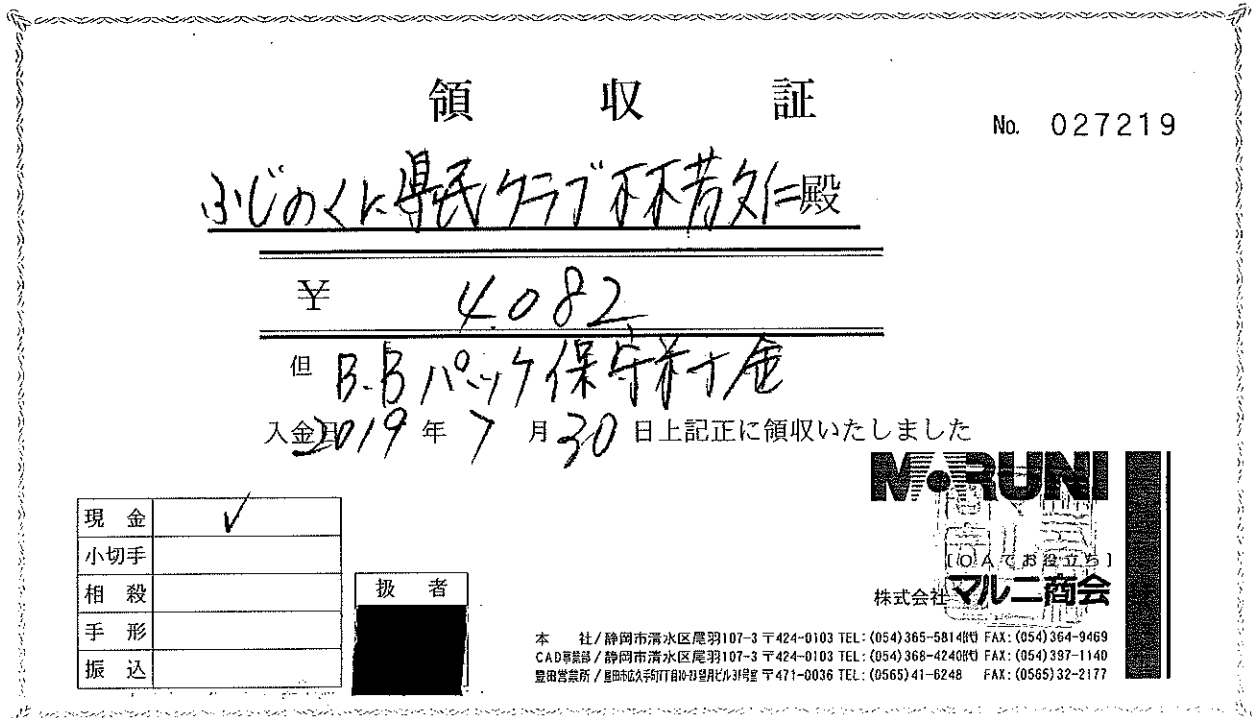 領収証
No. 027219
ふじのくに県民クラブ 杉本昔文仁殿
¥ 4.082
但 B.Bパック保守料金
入金日2019年7月30日上記正に領収いたしました
現金 ✓
小切手
相殺
手形
振込
扱者
MARUNI
[OAでお役立ち]
株式会社マルニ商会
本 社/静岡市清水区尾羽107-3 〒424-0103 TEL:(054)365-5814㈹ FAX:(054)364-9469
CAD事業部/静岡市清水区尾羽107-3 〒424-0103 TEL:(054)368-4240㈹ FAX:(054)397-1140
豊田営業所/ 〒471-0036 TEL:(0565)41-6248 FAX:(0565)32-2177